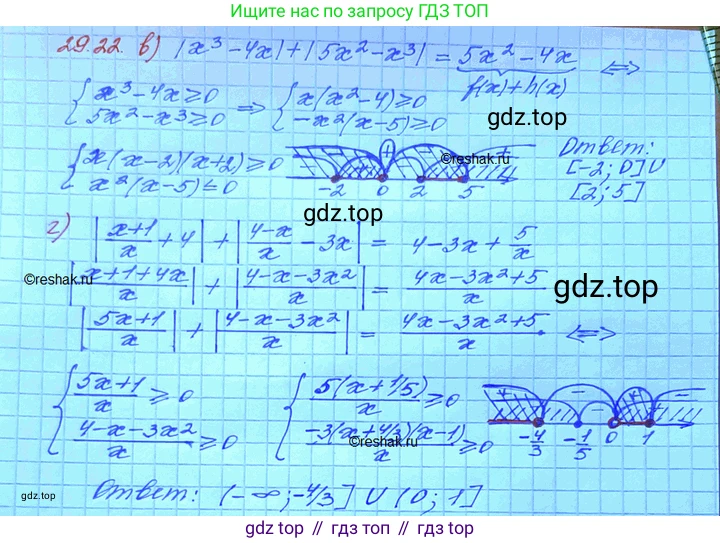 Ищите нас по запросу ГДЗ ТОП
29.22. в) |x³-4x|+|5x²-x³| = 5x²-4x ⟺
f(x)+h(x)
{x³-4x≥0
5x²-x³≥0 ⇒ {x(x²-4)≥0
-x²(x-5)≥0
gdz.top
{x(x-2)(x+2)≥0
x²(x-5)≤0
-2 0 2 5
©reshak.ru
Ответ:
[-2; 0]∪
[2; 5]
gdz.top
г) |x+1/x + 4| + |4-x/x - 3x| = 4-3x+5/x
©reshak.ru
|x+1+4x/x| + |4-x-3x²/x| = 4x-3x²+5/x
gdz.top
|5x+1/x| + |4-x-3x²/x| = 4x-3x²+5/x ⟺
{5x+1/x ≥ 0
4-x-3x²/x ≥ 0
{5(x+1/5)/x ≥ 0
-3(x+4/3)(x-1)/x ≥ 0
-4/3 -1/5 0 1
©reshak.ru
gdz.top
Ответ: (-∞; -4/3] ∪ (0; 1]
gdz top // гдз топ // gdz top